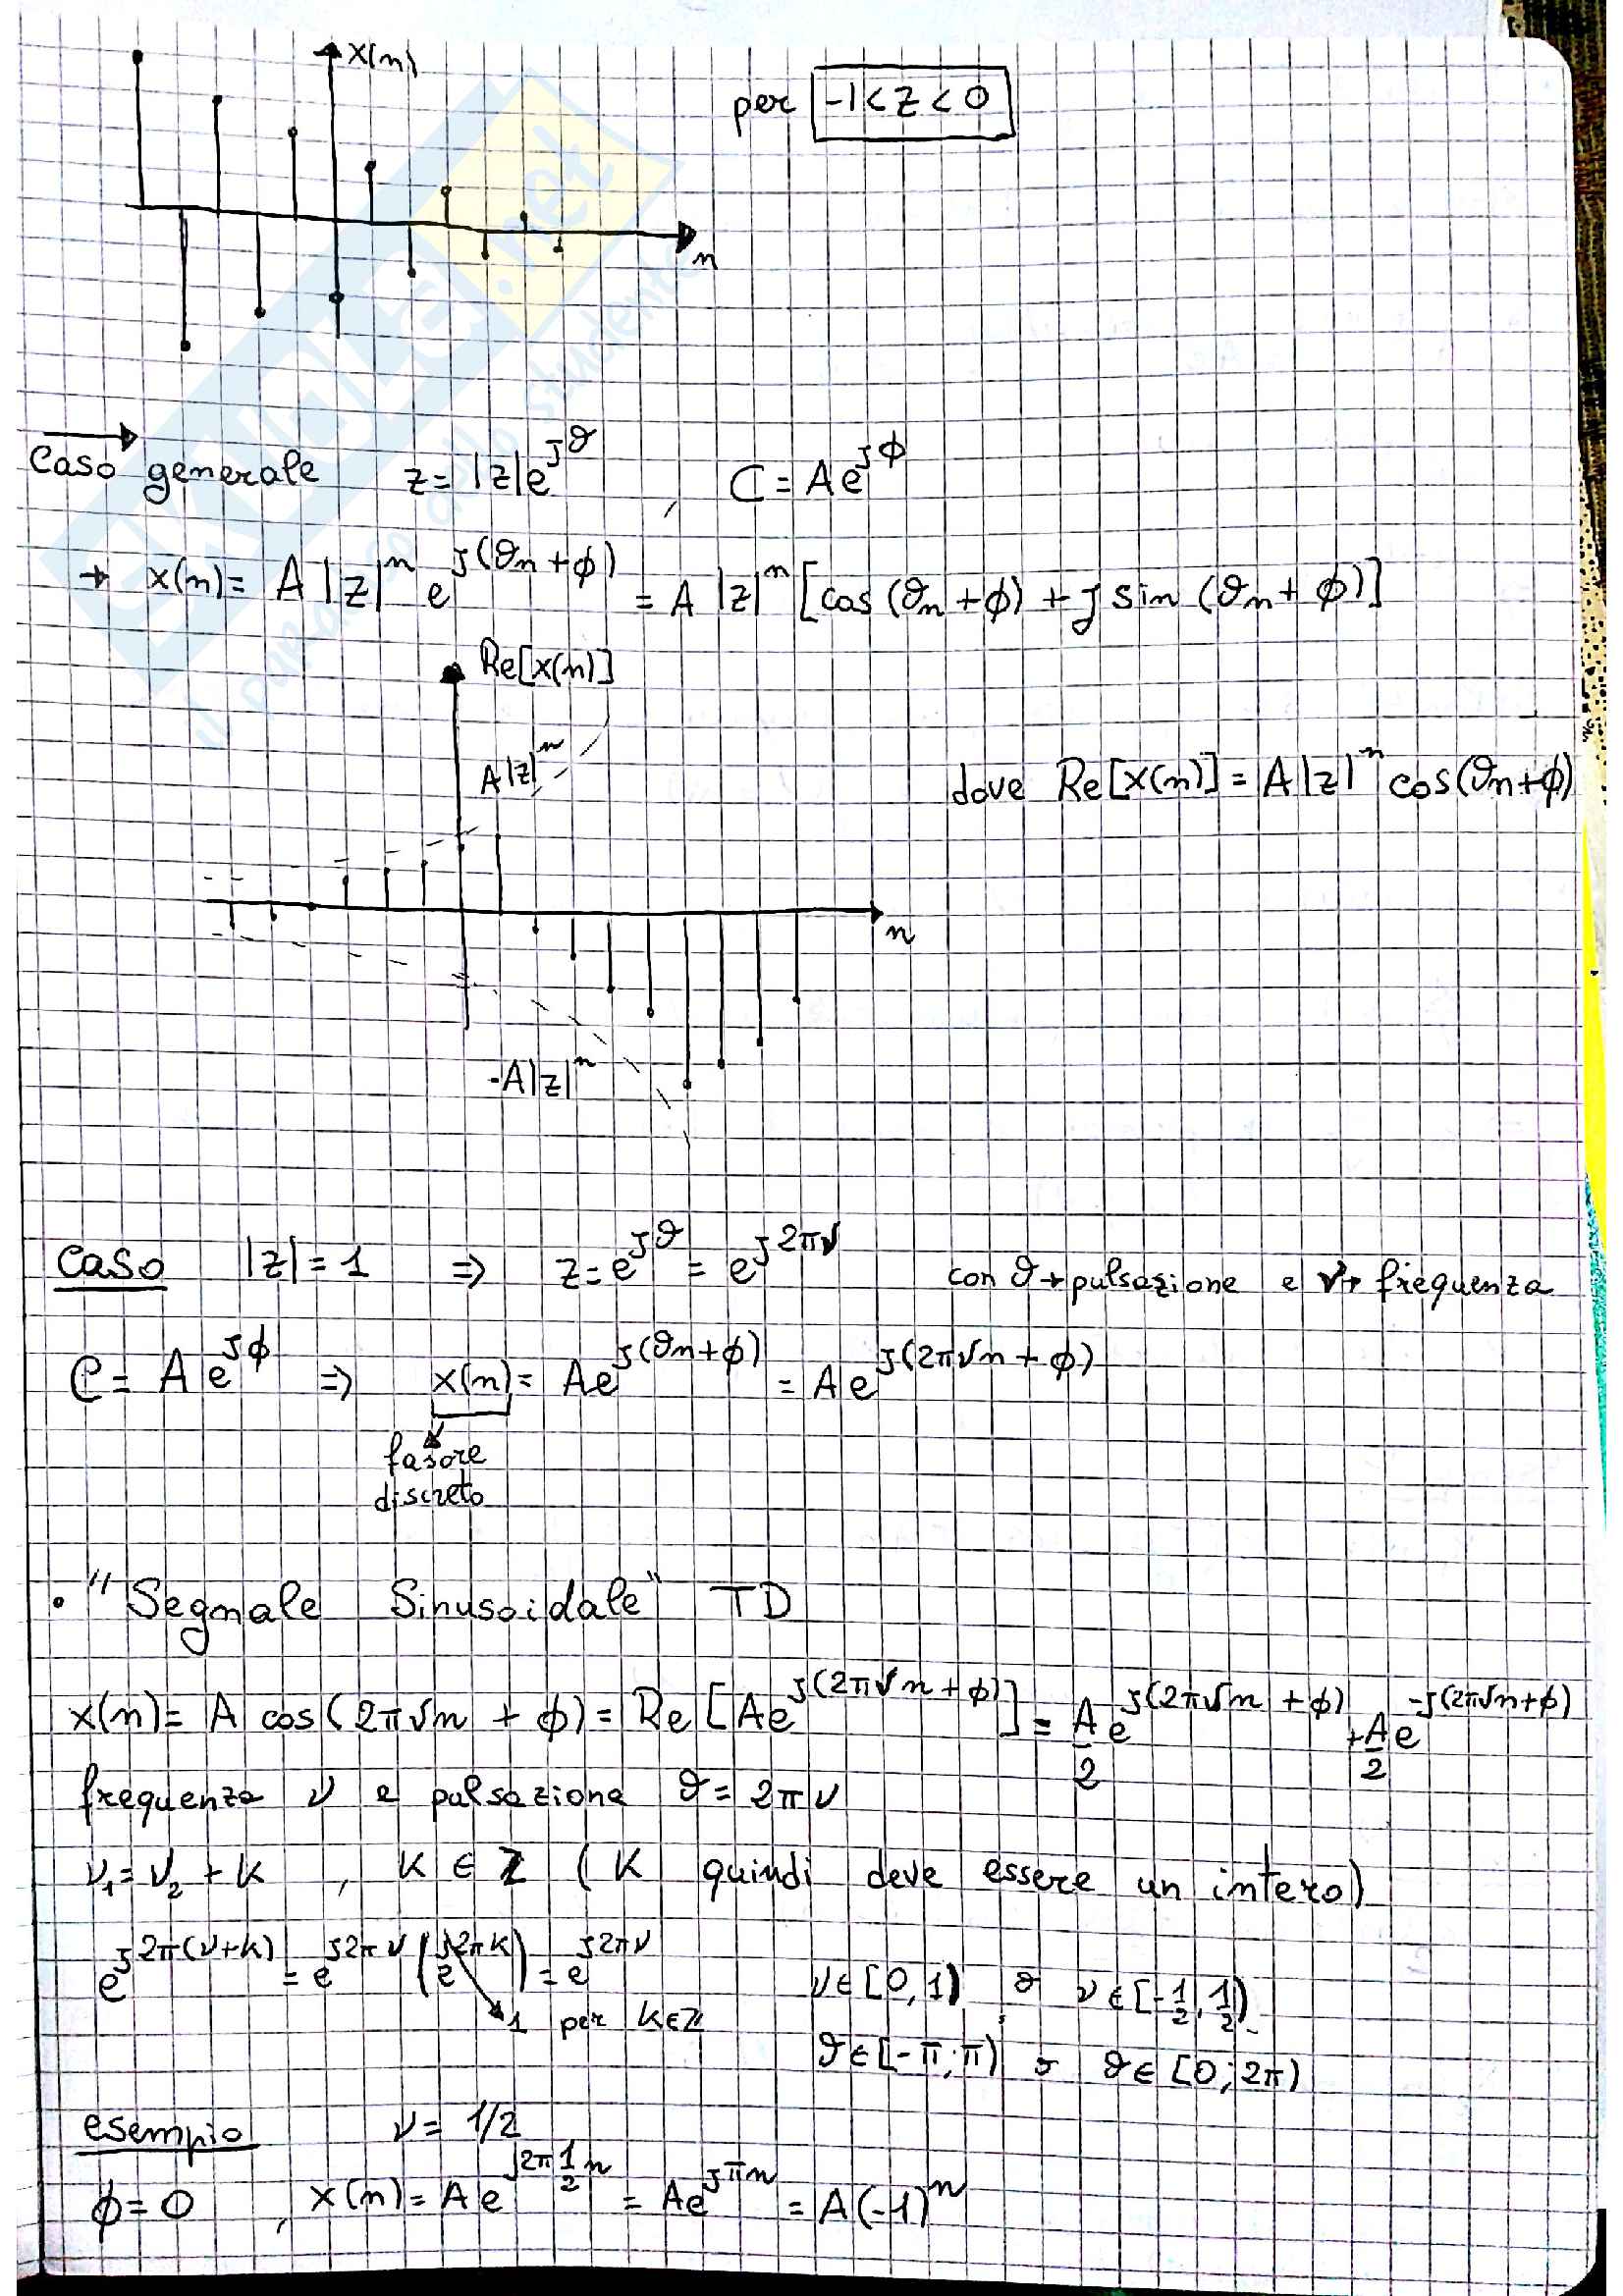 x(n)
per -1 < z < 0
n
Caso generale z = |z|e^{jϑ} , C = Ae^{jϕ}
→ x(n) = A |z|^n e^{j(ϑn + ϕ)} = A |z|^n [cos (ϑn + ϕ) + j sin (ϑn + ϕ)]
Re[x(n)]
A|z|^n
dove Re[x(n)] = A|z|^n cos(ϑn+ϕ)
n
-A|z|^n
caso |z| = 1 ⇒ z = e^{jϑ} = e^{j2πν} con ϑ → pulsazione e ν → frequenza
C = A e^{jϕ} ⇒ x(n) = Ae^{j(ϑn+ϕ)} = A e^{j(2πνn + ϕ)}
fasore
discreto
• "Segnale Sinusoidale" TD
x(n) = A cos(2πνn + ϕ) = Re [Ae^{j(2πνn + ϕ)}] = A/2 e^{j(2πνn + ϕ)} + A/2 e^{-j(2πνn+ϕ)}
frequenza ν e pulsazione ϑ = 2πν
ν₁ = ν₂ + k , k ∈ ℤ ( k quindi deve essere un intero)
e^{j2π(ν+k)} = e^{j2πν} (e^{j2πk}) = e^{j2πν}
1 per k∈ℤ
ν ∈ [0,1) o ν ∈ [-1/2, 1/2)
ϑ ∈ [-π;π) o ϑ ∈ [0;2π)
esempio ν = 1/2
ϕ = 0 , x(n) = A e^{j2π 1/2 n} = Ae^{jπn} = A(-1)^n